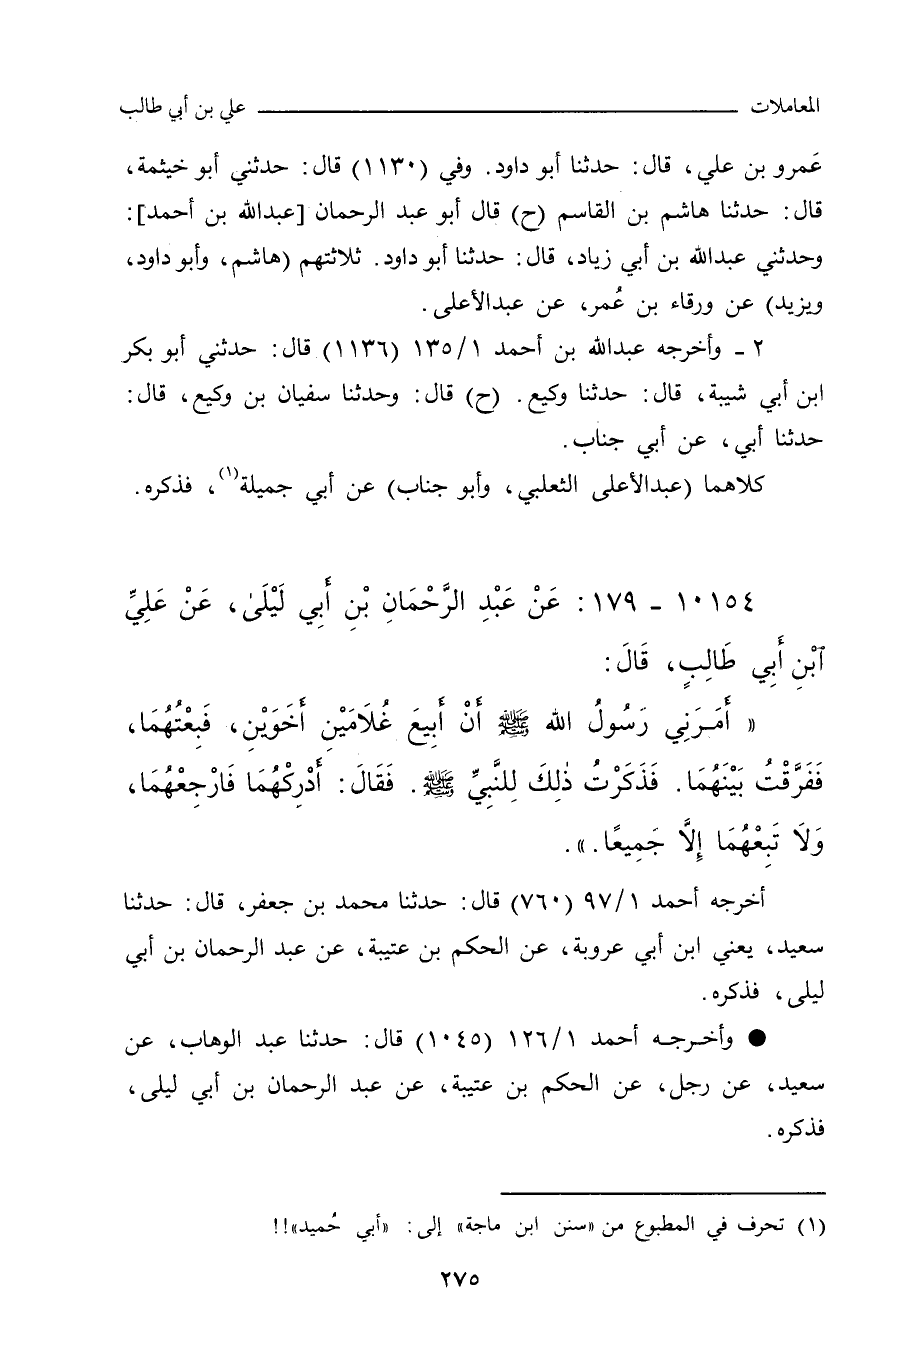 المعاملات ــــــــــــــــــــ علي بن أبي طالب
عَمرو بن علي، قال: حدثنا أبو داود. وفي (١١٣٠) قال: حدثني أبو خيثمة،
قال: حدثنا هاشم بن القاسم (ح) قال أبو عبد الرحمان [عبدالله بن أحمد]:
وحدثني عبدالله بن أبي زياد، قال: حدثنا أبو داود. ثلاثتهم (هاشم، وأبو داود،
ويزيد) عن ورقاء بن عُمر، عن عبدالأعلى.
٢ ـ وأخرجه عبدالله بن أحمد ١٣٥/١ (١١٣٦) قال: حدثني أبو بكر
ابن أبي شيبة، قال: حدثنا وكيع. (ح) قال: وحدثنا سفيان بن وكيع، قال:
حدثنا أبي، عن أبي جناب.
كلاهما (عبدالأعلى الثعلبي، وأبو جناب) عن أبي جميلة(١)، فذكره.
١٠١٥٤ ـ ١٧٩: عَنْ عَبْدِ الرَّحْمَانِ بْنِ أَبِي لَيْلَىٰ، عَنْ عَلِيِّ
ٱبْنِ أَبِي طَالِبٍ، قَالَ:
« أَمَرَنِي رَسُولُ الله ﷺ أَنْ أَبِيعَ غُلَامَيْنِ أَخَوَيْنِ، فَبِعْتُهُمَا،
فَفَرَّقْتُ بَيْنَهُمَا. فَذَكَرْتُ ذٰلِكَ لِلنَّبِيِّ ﷺ. فَقَالَ: أَدْرِكْهُمَا فَارْجِعْهُمَا،
وَلَا تَبِعْهُمَا إِلَّا جَمِيعًا.».
أخرجه أحمد ٩٧/١ (٧٦٠) قال: حدثنا محمد بن جعفر، قال: حدثنا
سعيد، يعني ابن أبي عروبة، عن الحكم بن عتيبة، عن عبد الرحمان بن أبي
ليلى، فذكره.
● وأخرجه أحمد ١٢٦/١ (١٠٤٥) قال: حدثنا عبد الوهاب، عن
سعيد، عن رجل، عن الحكم بن عتيبة، عن عبد الرحمان بن أبي ليلى،
فذكره.
(١) تحرف في المطبوع من «سنن ابن ماجة» إلى: «أبي حُميد»!!
٢٧٥